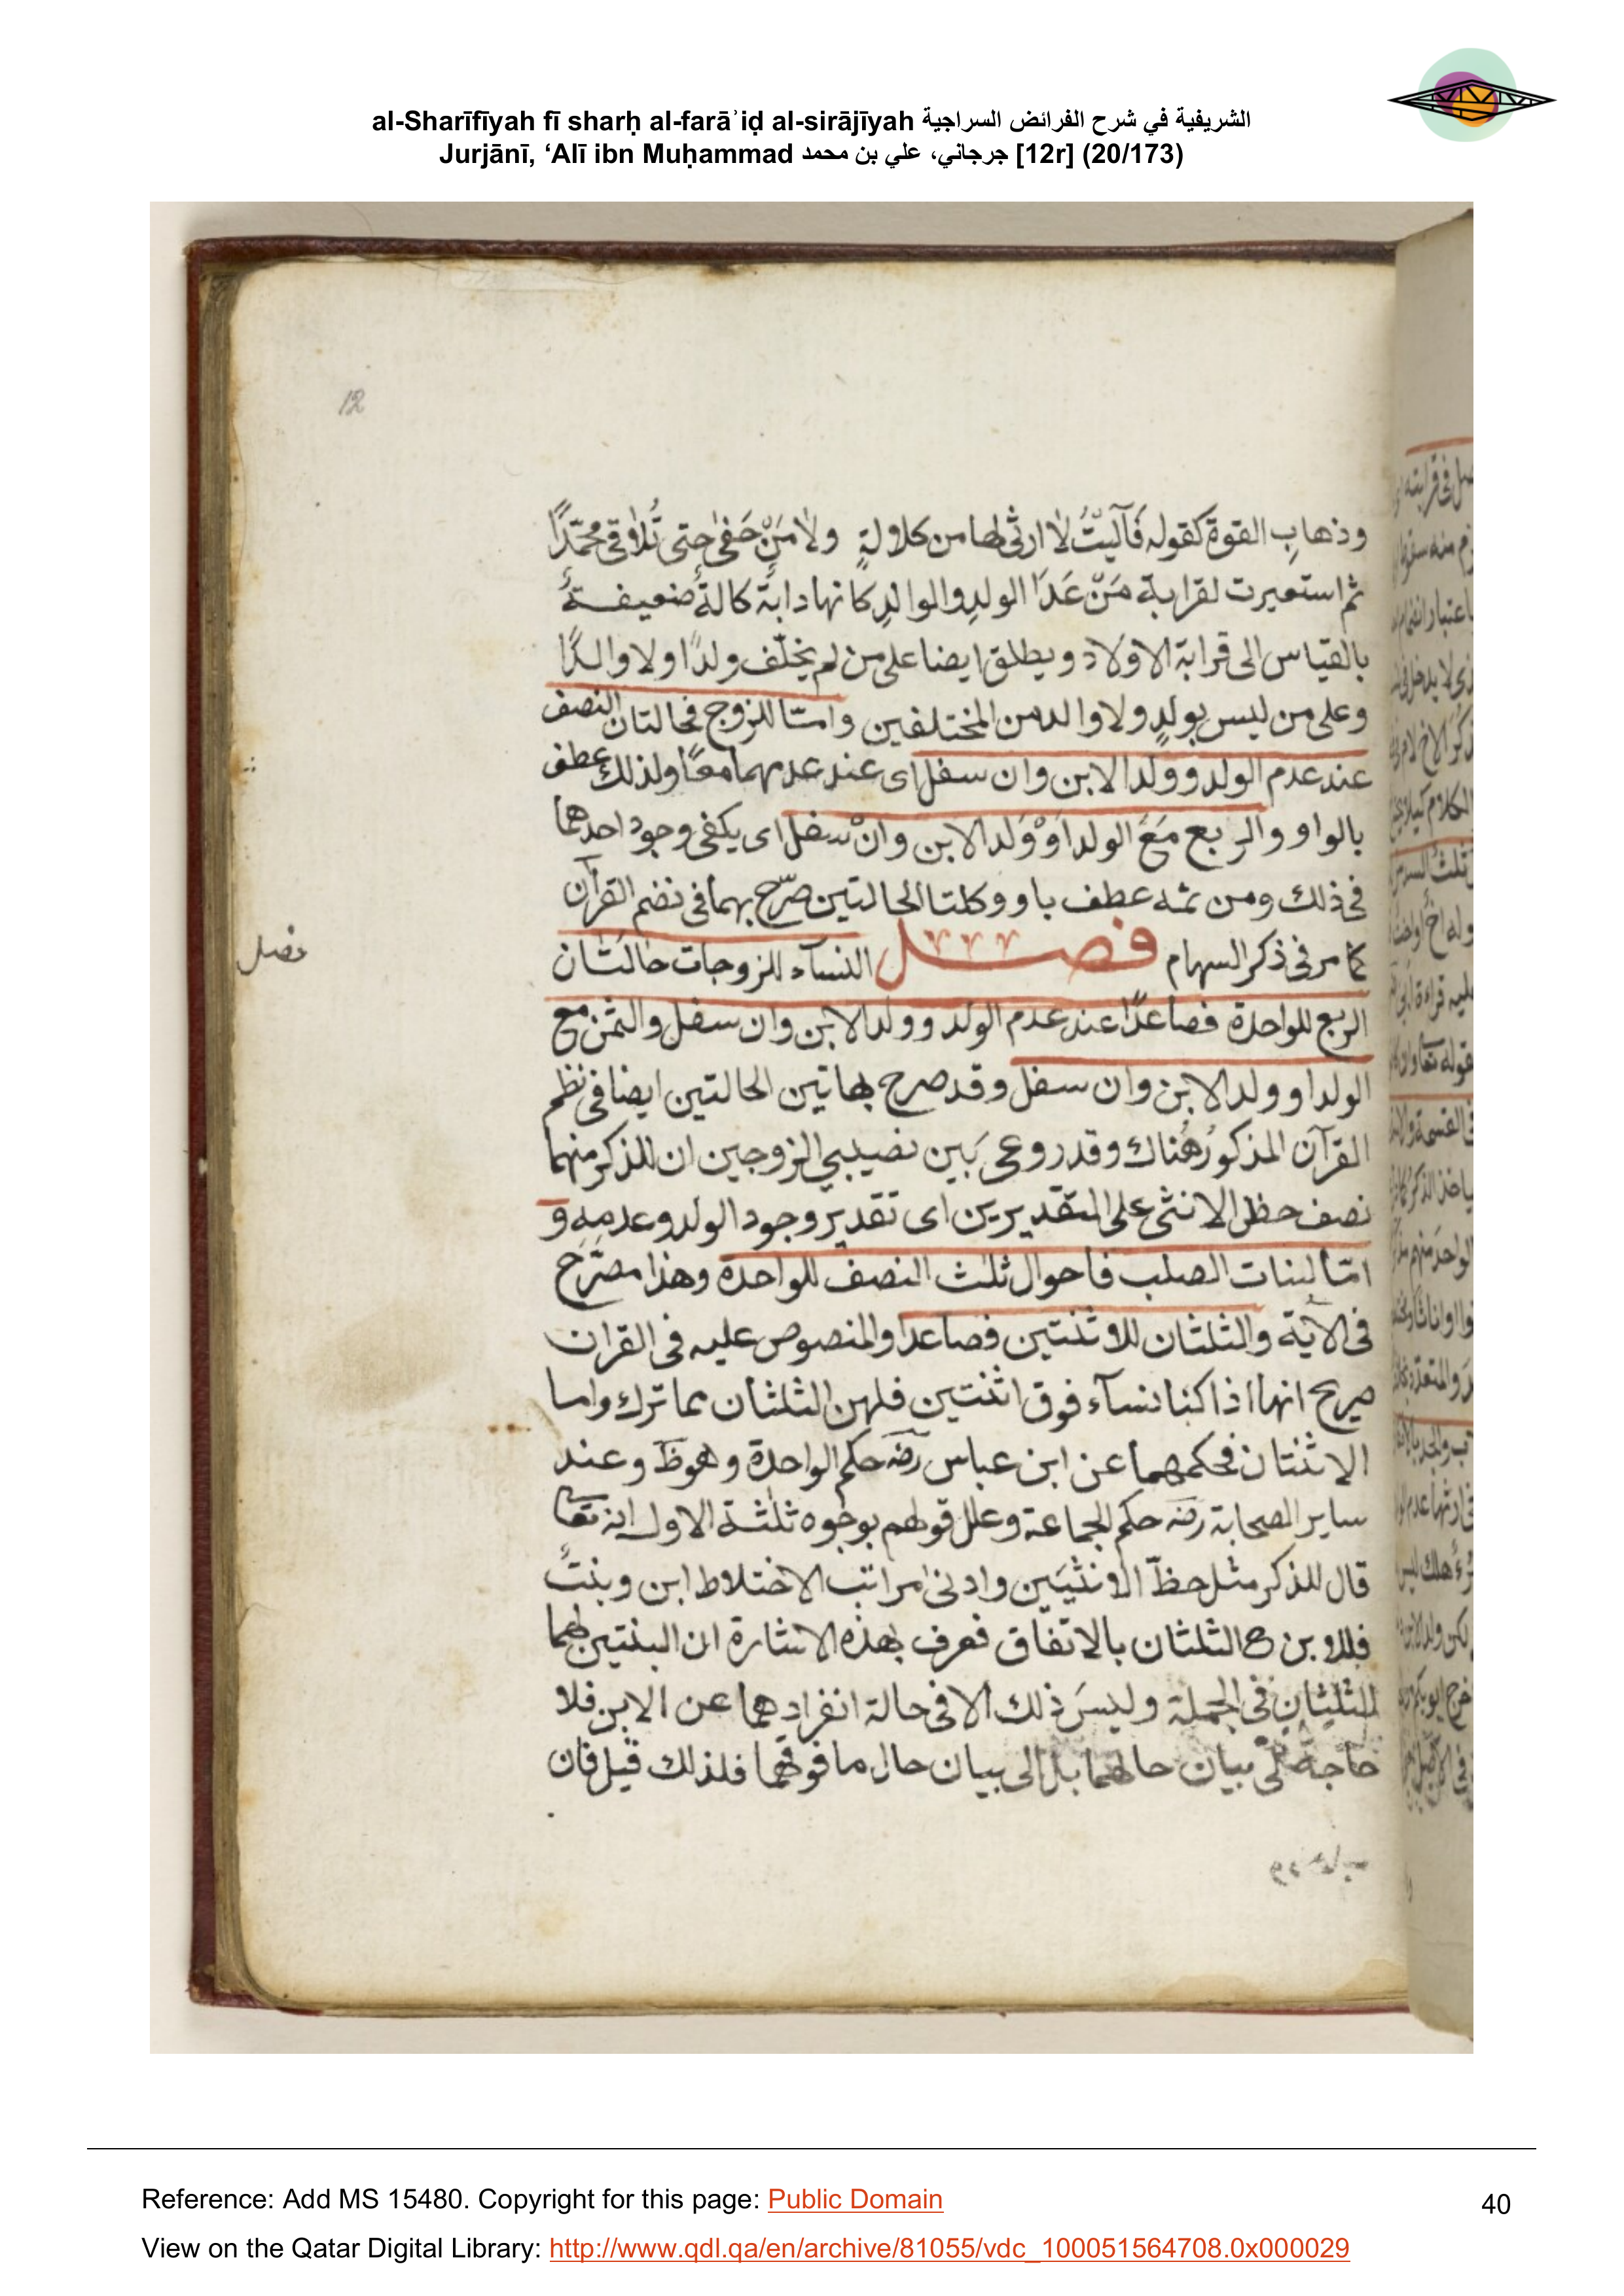 al-Sharīfīyah fī sharḥ al-farāʾiḍ al-sirājīyah الشريفية في شرح الفرائض السراجية
Jurjānī, ‘Alī ibn Muḥammad جرجاني، علي بن محمد [12r] (20/173)
12
وذهابِ القوة كقوله فَآلَيْتُ لا ارثى لها من كلالةٍ ولا مَنْ حَفىٰ حتى تُلاقى محمّدًا
ثم استعيرت لقرابة مَنْ عَدَا الولدِ والوالدِ كانها دابة كالةٌ ضعيفةٌ
بالقياس الى قرابة الاولاد ويطلق ايضا على من لم يخلّف ولدًا ولا والدًا
وعلى من ليس بولدٍ ولا والد من المختلفين وامّا للزوج فحالتان النصف
عند عدم الولد وولد الابن وان سفل اى عند عدمهما معًا ولذلك عطف
بالواو والربع مَعَ الولد اَوْ وَلد الابن وانْ سفل اى يكفى وجود احدهما
فى ذلك ومن ثمه عطف باو وكلتا الحالتين صرّح بهما فى نضم القرآن
كما مر فى ذكر السهام فصل النسآء للزوجات حالتان
فصل
الربع للواحدة فصاعدًا عند عدم الولد وولد الابن وان سفل والثمن مع
الولد او ولد الابن وان سفل وقد صرح بهاتين الحالتين ايضا فى نظم
القرآن المذكور هُناك وقد روعى بَين نصيبي الزوجين ان للذكر منهما
نصف حظ الانثى على التقديرين اى تقدير وجود الولد وعدمِهِ و
امّا لبنات الصلب فاحوال ثلث النصف للواحدة وهذا مصَرَّح
فى الآية والثلثان للاثنتين فصاعدا والمنصوص عليه فى القران
صريح انها اذا كنا نسآء فوق اثنتين فلهن الثلثان مما ترك واما
الاثنتان فحكمهما عن ابن عباس رضه حكم الواحدة وهو ظ وعند
ساير الصحابة رضه حكم الجماعة وعلل قولهم بوجوه ثلثة الاول انه تعا
قال للذكر مثل حظّ الانثيَين وادنى مراتب الاختلاط ابن وبنتٌ
فللابن ح الثلثان بالاتفاق فعرف بهذه الاشارة ان البنتين لهما
الثلثان فى الجملة وليسَ ذلك الا فى حالة انفرادهما عن الابن فلا
حاجة الى بيان حالهما بل الى بيان حال ما فوقهما فلذلك قيل فان
Reference: Add MS 15480. Copyright for this page: Public Domain
View on the Qatar Digital Library: http://www.qdl.qa/en/archive/81055/vdc_100051564708.0x000029
40